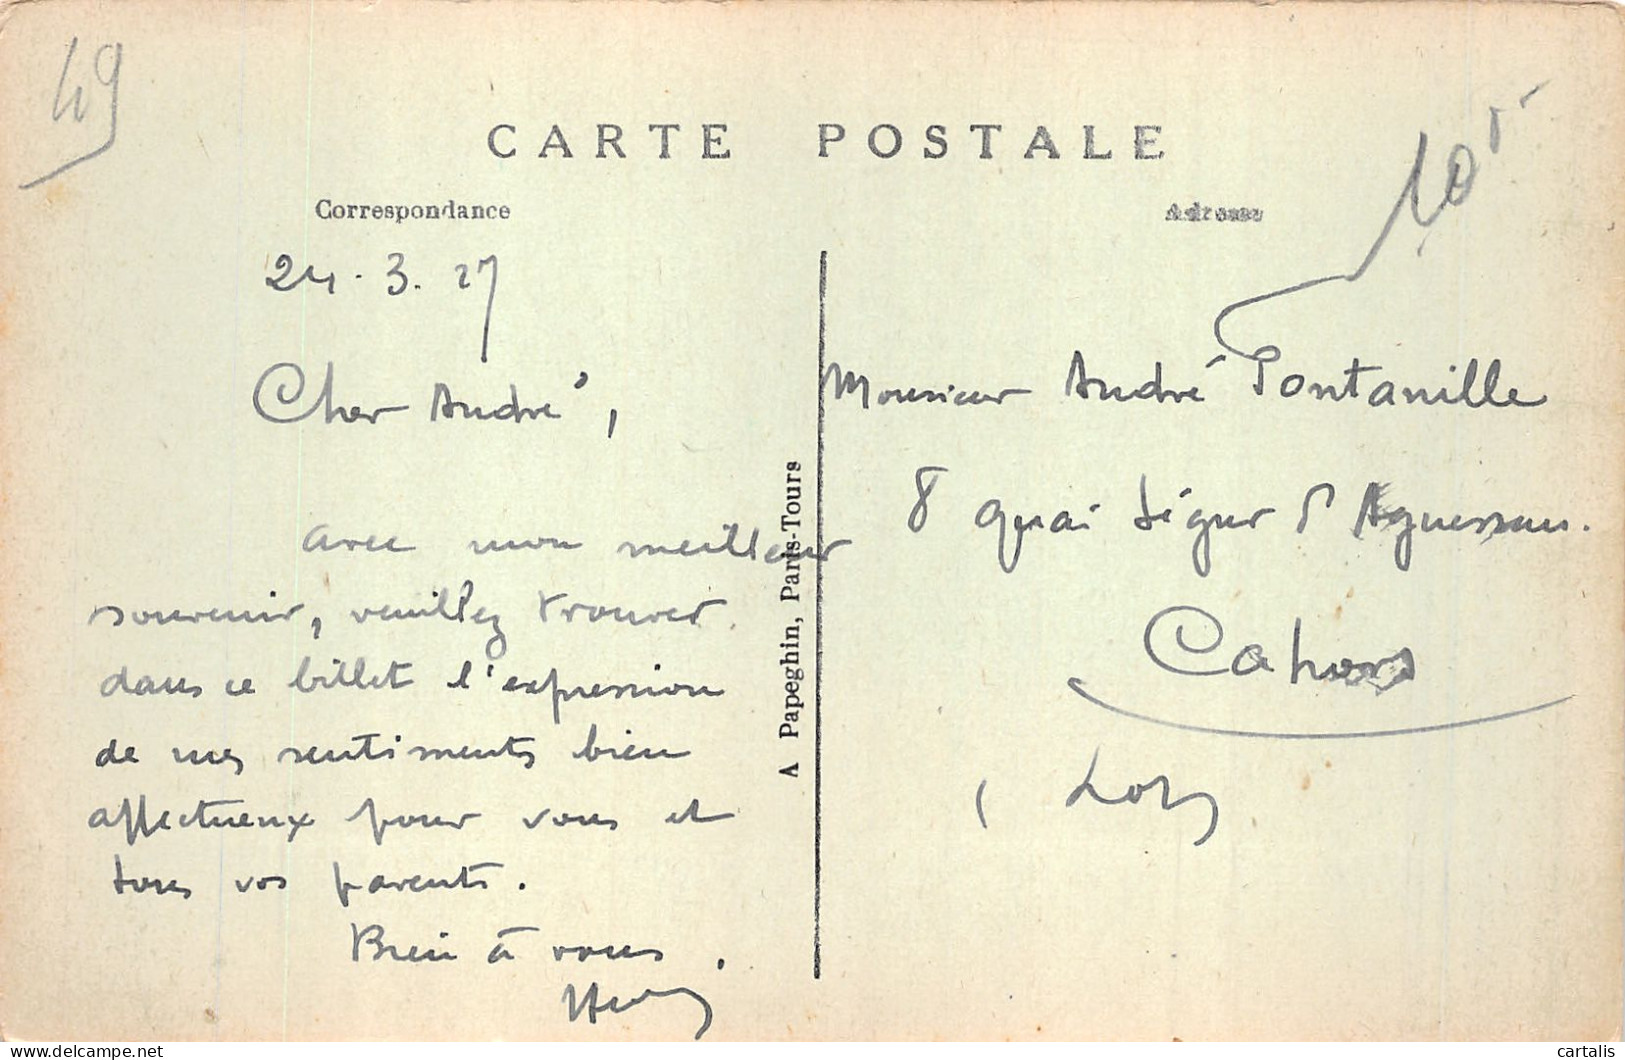 49
CARTE POSTALE
10
Correspondance
Adresse
24.3.27
Cher André,
avec mon meilleur
souvenir, veuillez trouver
dans ce billet l'expression
de mes sentiments bien
affectueux pour vous et
tous vos parents.
Bien à vous.
A Papeghin, Paris-Tours
Monsieur André Fontanille
8 quai Ségur d'Aguesseau.
Cahors
(Lot)
cartalis.delcampe.net
cartalis